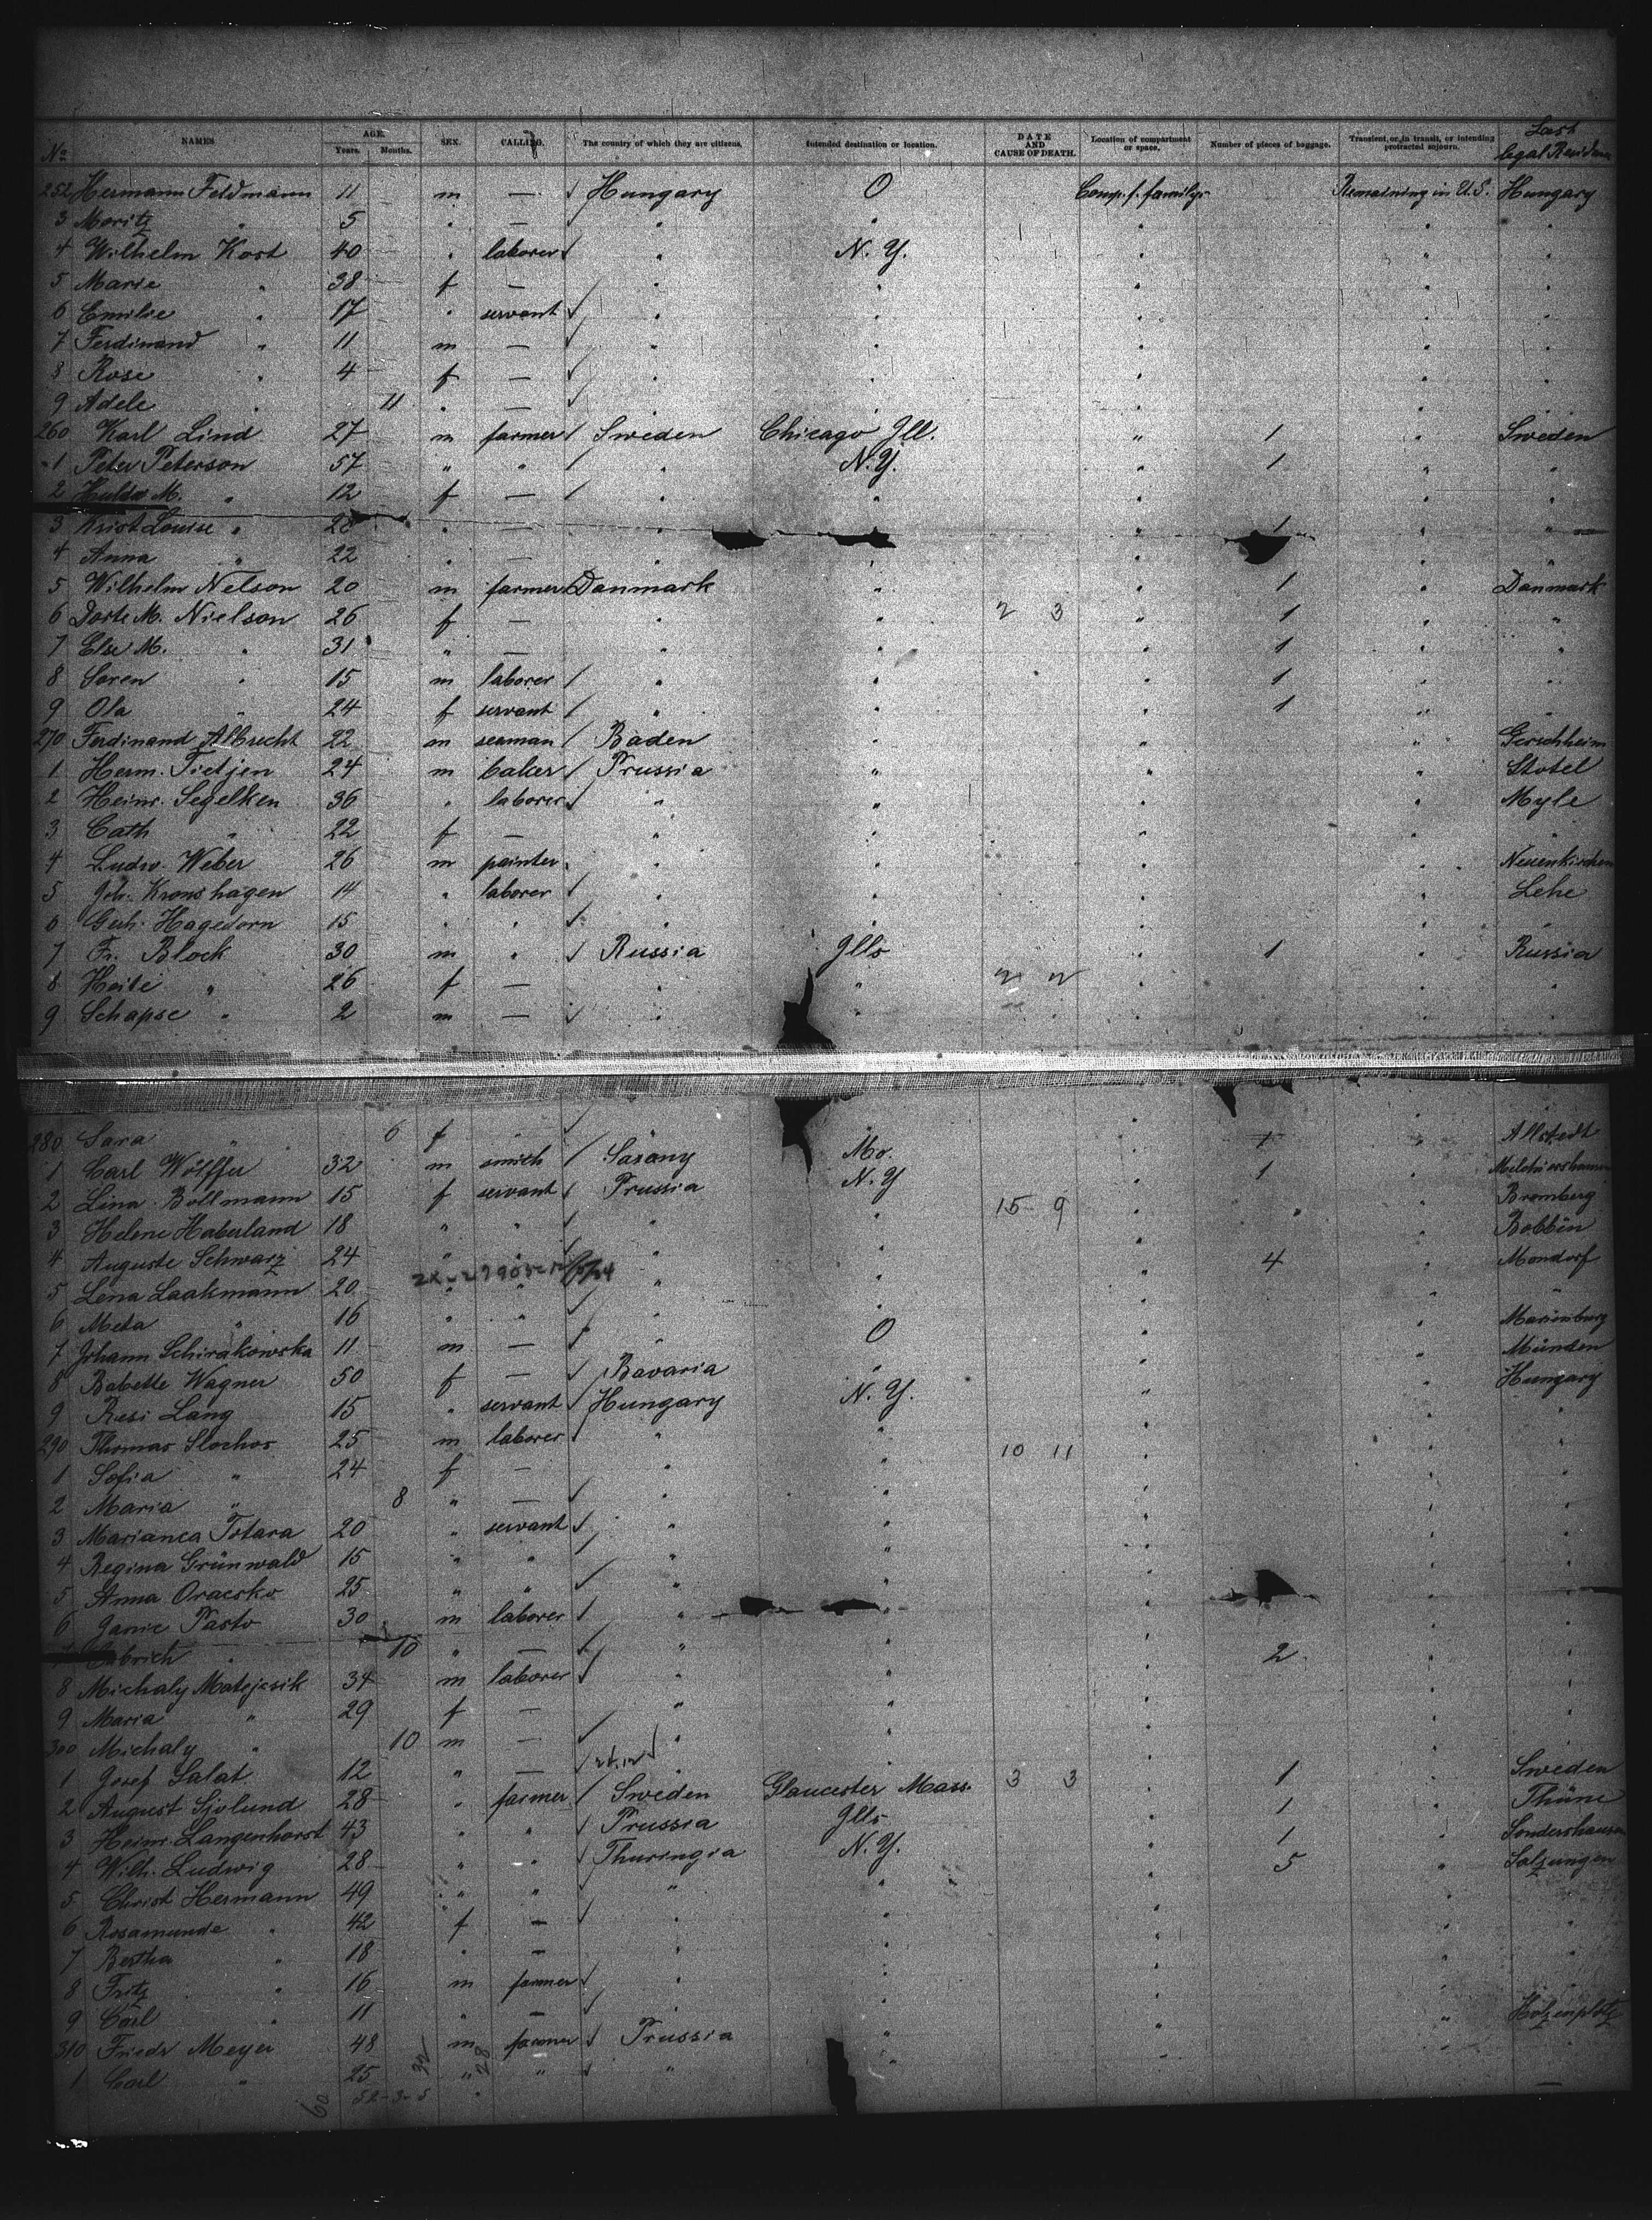 No. NAMES AGE. Years. Months. SEX. CALLING. The country of which they are citizens. Intended destination or location. DATE AND CAUSE OF DEATH. Location of compartment or space. Number of pieces of baggage. Transient, or in transit, or intending protracted sojourn. Last legal Residence
252 Hermann Feldmann 11 m — Hungary O Comp. f. familys Remaining in U.S. Hungary
3 Moritz " 5 " — " " " " "
4 Wilhelm Kost 40 " laborer " N. Y. " " "
5 Marie " 38 f — " " " " "
6 Emilie " 17 " servant " " " " "
7 Ferdinand " 11 m — " " " " "
8 Rose " 4 f — " " " " "
9 Adele " 11 " — " " " " "
260 Karl Lind 27 m farmer Sweden Chicago Ill. " 1 " Sweden
1 Peter Peterson 57 " " " N.Y. " 1 " "
2 Hulda M. " 12 f — " " " " "
3 Krist Louise " 28 " — " " " 1 " "
4 Anna " 22 " — " " " " "
5 Wilhelm Nelson 20 m farmer Danmark " " 1 " Danmark
6 Dorte M. Nielson 26 f — " " 2 3 " 1 " "
7 Else M. " 31 " — " " " 1 " "
8 Soren " 15 m laborer " " " 1 " "
9 Ola " 24 f servant " " " 1 " "
270 Ferdinand Albrecht 22 m seaman Baden " " " Gerschheim
1 Herm. Tietjen 24 m baker Prussia " " " Stotel
2 Heinr. Segelken 36 " laborer " " " " Myle
3 Cath " 22 f — " " " " "
4 Ludw. Weber 26 m painter " " " " Neuenkirchen
5 Joh. Kronshagen 14 " laborer " " " " Lehe
6 Gerh. Hagedorn 15 " " " " " " "
7 Fr. Block 30 m " Russia Ills " 1 " Russia
8 Heile " 26 f — " " 2 2 " " "
9 Schapse " 2 m — " " " " "
280 Sara " 6 f — " " 1 " Allstedt
1 Carl Wölffer 32 m smith Saxony Mo. " 1 "
2 Lina Bollmann 15 f servant Prussia N. Y 15 9 " " Bromberg
3 Helene Haberland 18 " " " " " " Bobbin
4 Auguste Schwarz 24 " " " " " 4 " Mondorf
5 Lena Laakmann 20 " " " " " " "
6 Meta " 16 " " " " " " Marienburg
7 Johann Schirakowska 11 m — " O " " Münden
8 Babette Wagner 50 f — Bavaria " " " Hungary
9 Resi Lang 15 " servant Hungary N. Y. " " "
290 Thomas Slochos 25 m laborer " " 10 11 " " "
1 Sofia " 24 f — " " " " "
2 Maria " 8 " — " " " " "
3 Marianca Tstara 20 " servant " " " " "
4 Regina Grünwald 15 " " " " " " "
5 Anna Oracsko 25 " " " " " " "
6 Janie Pasto 30 m laborer " " " " "
" 10 " — " " 2 " "
8 Michaly Matejcsik 34 m laborer " " " " "
9 Maria " 29 f — " " " " "
300 Michaly " 10 m — " " " " "
1 Josef Salat 12 " — " " " 1 " Sweden
2 August Sjolund 28 " farmer Sweden Glaucester Mass. 3 3 " 1 " Thüne
3 Heinr. Langenhorst 43 " " Prussia Ills " 1 " Sondershausen
4 Wilh. Ludwig 28 " " Thuringia N. Y. " 5 " Salzungen
5 Christ Hermann 49 " " " " " " "
6 Rosamunde " 42 f — " " " " "
7 Bertha " 18 " — " " " " "
8 Fritz " 16 m farmer " " " " "
9 Carl " 11 " — " " " " Hotzenplotz
310 Friedr Meyer 48 m farmer Prussia " " "
1 Carl " 25 " " " " —
60 52-3-5 32 28